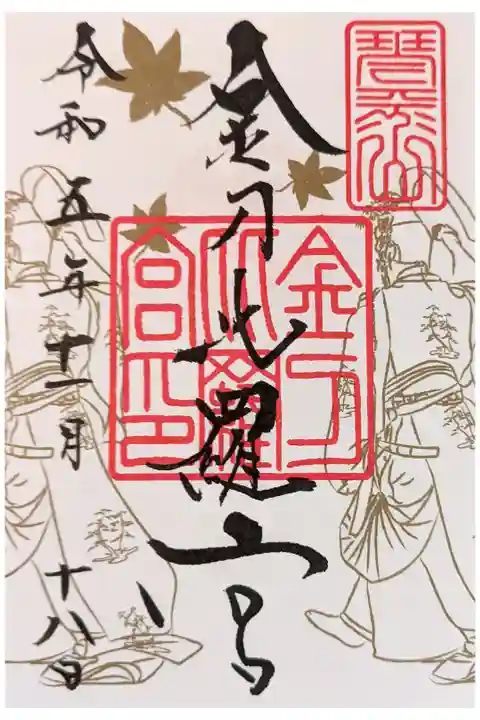 金刀比羅宮
令和五年十一月十八日
金刀比羅宮印